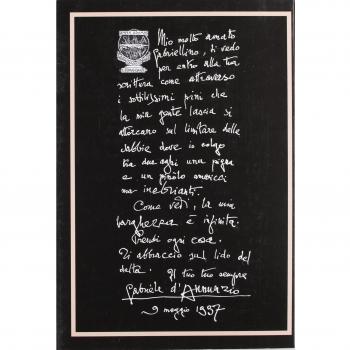 Mio molto amato
Gabriellino, ti vedo
per entro alla tua
scrittura come attraverso
i sottilissimi pini che
la mia gente lascia si
attorcano sul limitare delle
sabbie dove io colgo
tra due aghi una pigna
e un pinolo amaricci
ma inebrianti.
Come vedi, la mia
larghezza è infinita.
Prendi ogni cosa.
Ti abbraccio sul lido del
delta. Il tuo tuo sempre
Gabriele d'Annunzio
9 maggio 1937